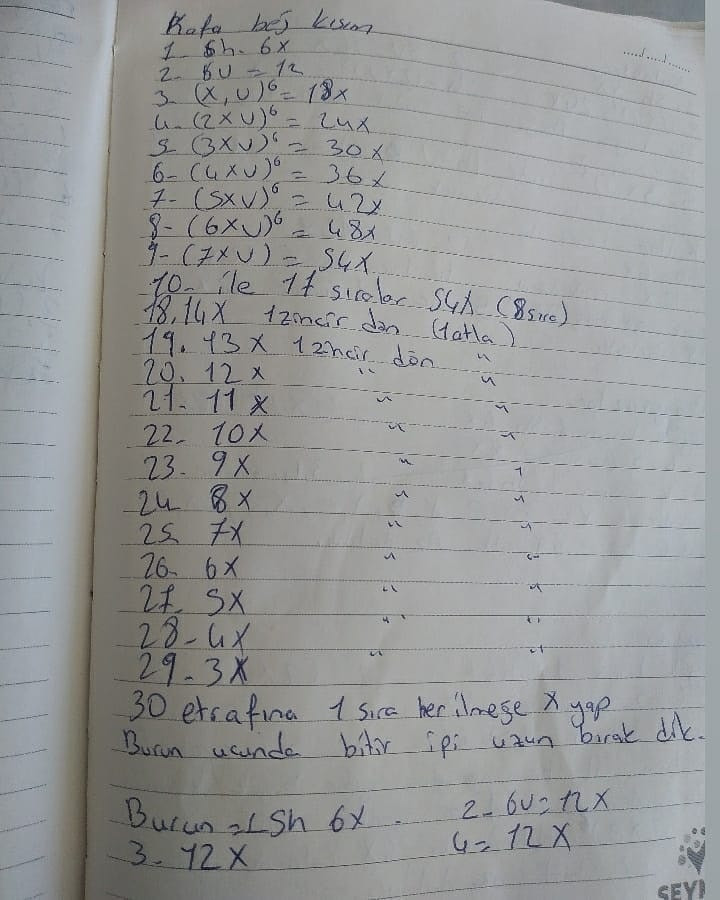 Kafa beş kısım
1. Sh. 6X
2- 6U = 12
3- (X, U)⁶ = 18x
4- (2XU)⁶ = 24x
5- (3XU)⁶ = 30x
6- (4XU)⁶ = 36x
7- (5XU)⁶ = 42x
8- (6XU)⁶ = 48x
9- (7XU) = 54X
10- ile 17 sıralar 54X (8 sıra)
18. 14X 1 zincir dön (1 atla)
19. 13X 1 zincir dön "
20. 12x " "
21- 11x " "
22- 10X " "
23. 9X " "
24 8X " "
25 7X " "
26- 6X " "
27- 5X " "
28- 4X " "
29- 3X " "
30 etrafına 1 sıra her ilmeğe X yap
Burun ucunda bitir ipi uzun bırak dik.
Burun = 1 Sh 6X. 2- 6U = 12X
3- 12X 4= 12X
SEY